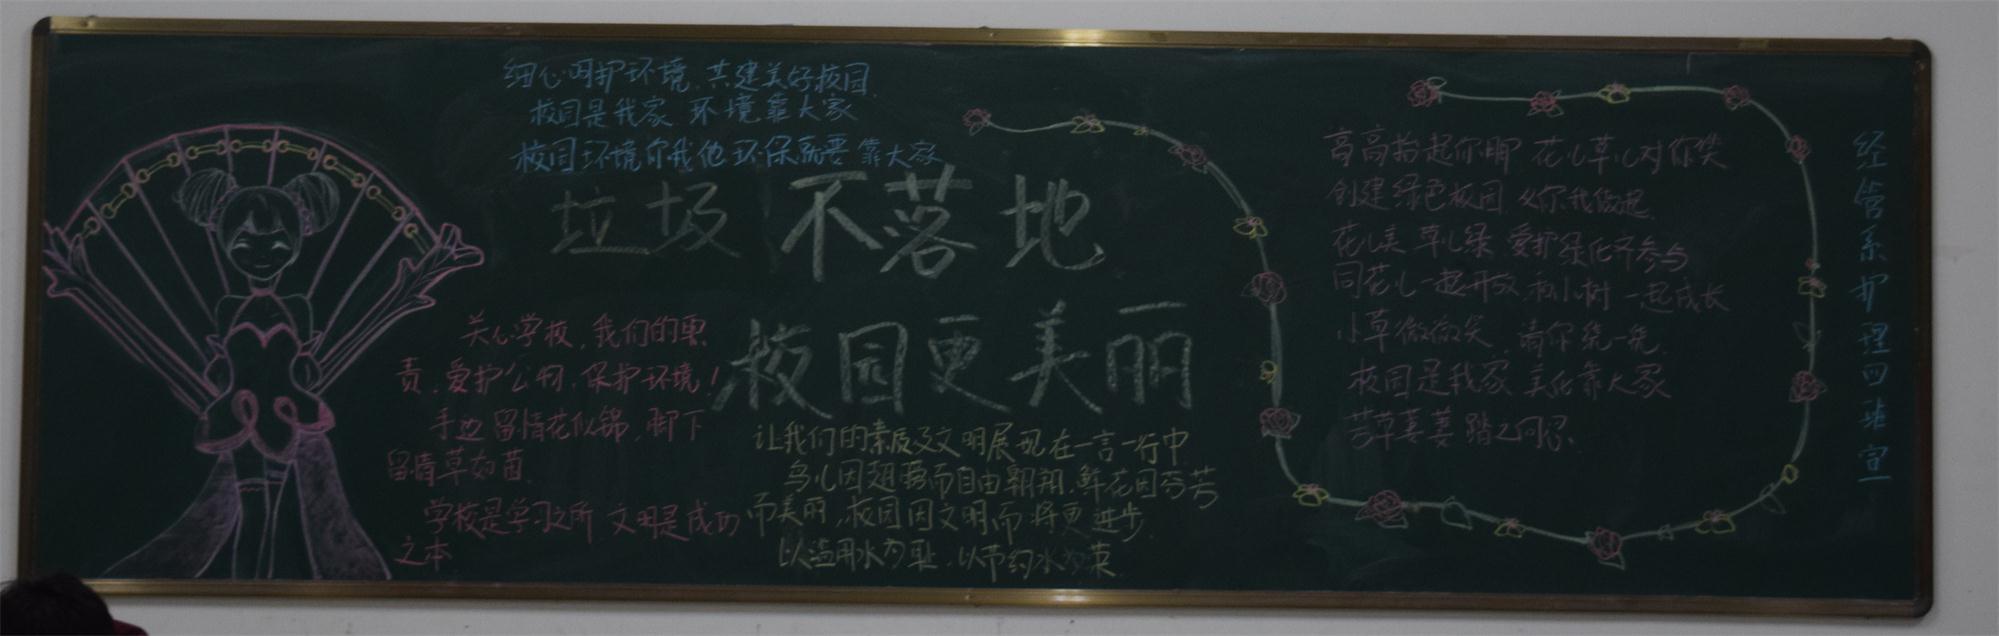 细心呵护环境,共建美好校园.
校园是我家 环境靠大家
校园环境你我他环保就要靠大家
垃圾不落地
校园更美丽
关心学校,我们的职
责,爱护公物,保护环境!
手边留情花似锦,脚下
留情草如茵.
学校是学习之所 文明是成功
之本
让我们的素质及文明展现在一言一行中
鸟儿因翅膀而自由翱翔,鲜花因芬芳
而美丽,校园因文明而将更进步.
以滥用水为耻,以节约水为荣
高高抬起你脚 花儿草儿对你笑
创建绿色校园 从你我做起
花儿美 草儿绿 爱护绿化齐参与
同花儿一起开放,和小树一起成长
小草微微笑 请你绕一绕
校园是我家 美化靠大家
芳草萋萋 踏之何忍
经管系护理四班宣